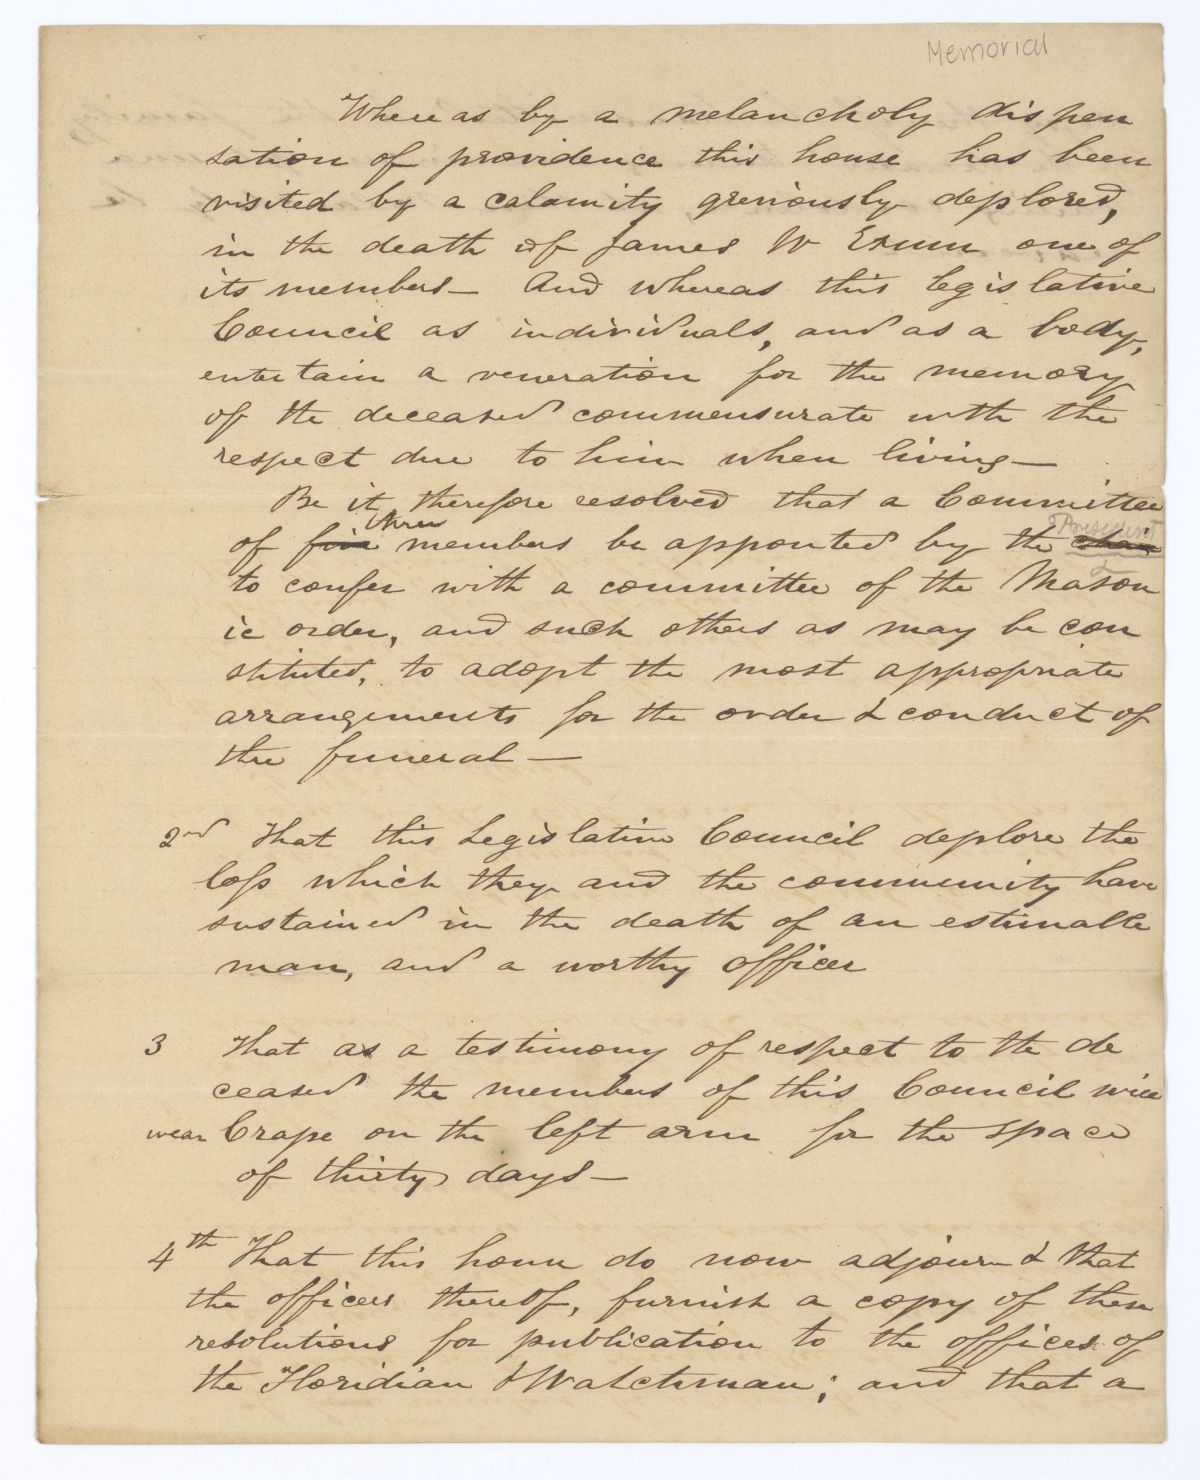 Memorial
Whereas by a melancholy dispen
sation of providence this house has been
visited by a calamity greviously deplored,
in the death of James W Exum one of
its members— And whereas this legislative
Council as individuals, and as a body,
entertain a veneration for the memory
of the deceased commensurate with the
respect due to him when living—
Be it therefore resolved that a Committee
of five three members be apponted by the chair President
to confer with a committee of the Mason
ic order, and such others as may be con
stituted, to adopt the most appropriate
arrangements for the order & conduct of
the funeral—
2nd That this Legislative Council deplore the
loss which they and the community have
sustained in the death of an estimable
man, and a worthy officer
3 That as a testimony of respect to the de
ceased the members of this Council will
wear Crape on the left arm for the space
of thirty days—
4th That this house do now adjourn & that
the officers thereof, furnish a copy of these
resolutions for publication to the offices of
the Floridian & Watchman; and that a